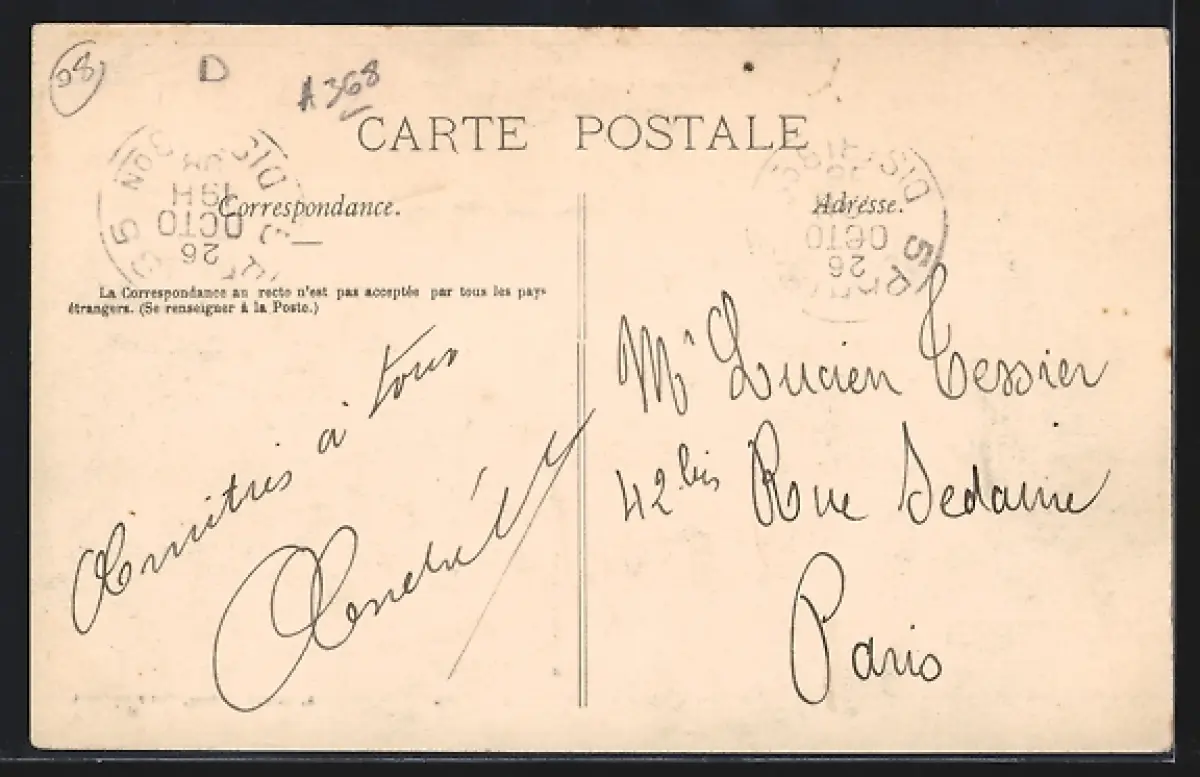 98
D
A 368
CARTE POSTALE
Correspondance.
Adresse.
19H
OCTO
26
5
OCTO
26
5
La Correspondance au recto n'est pas acceptée par tous les pays
étrangers. (Se renseigner à la Poste.)
Amitiés à tous
André
Mr Lucien Tessier
42 bis Rue Sedaine
Paris